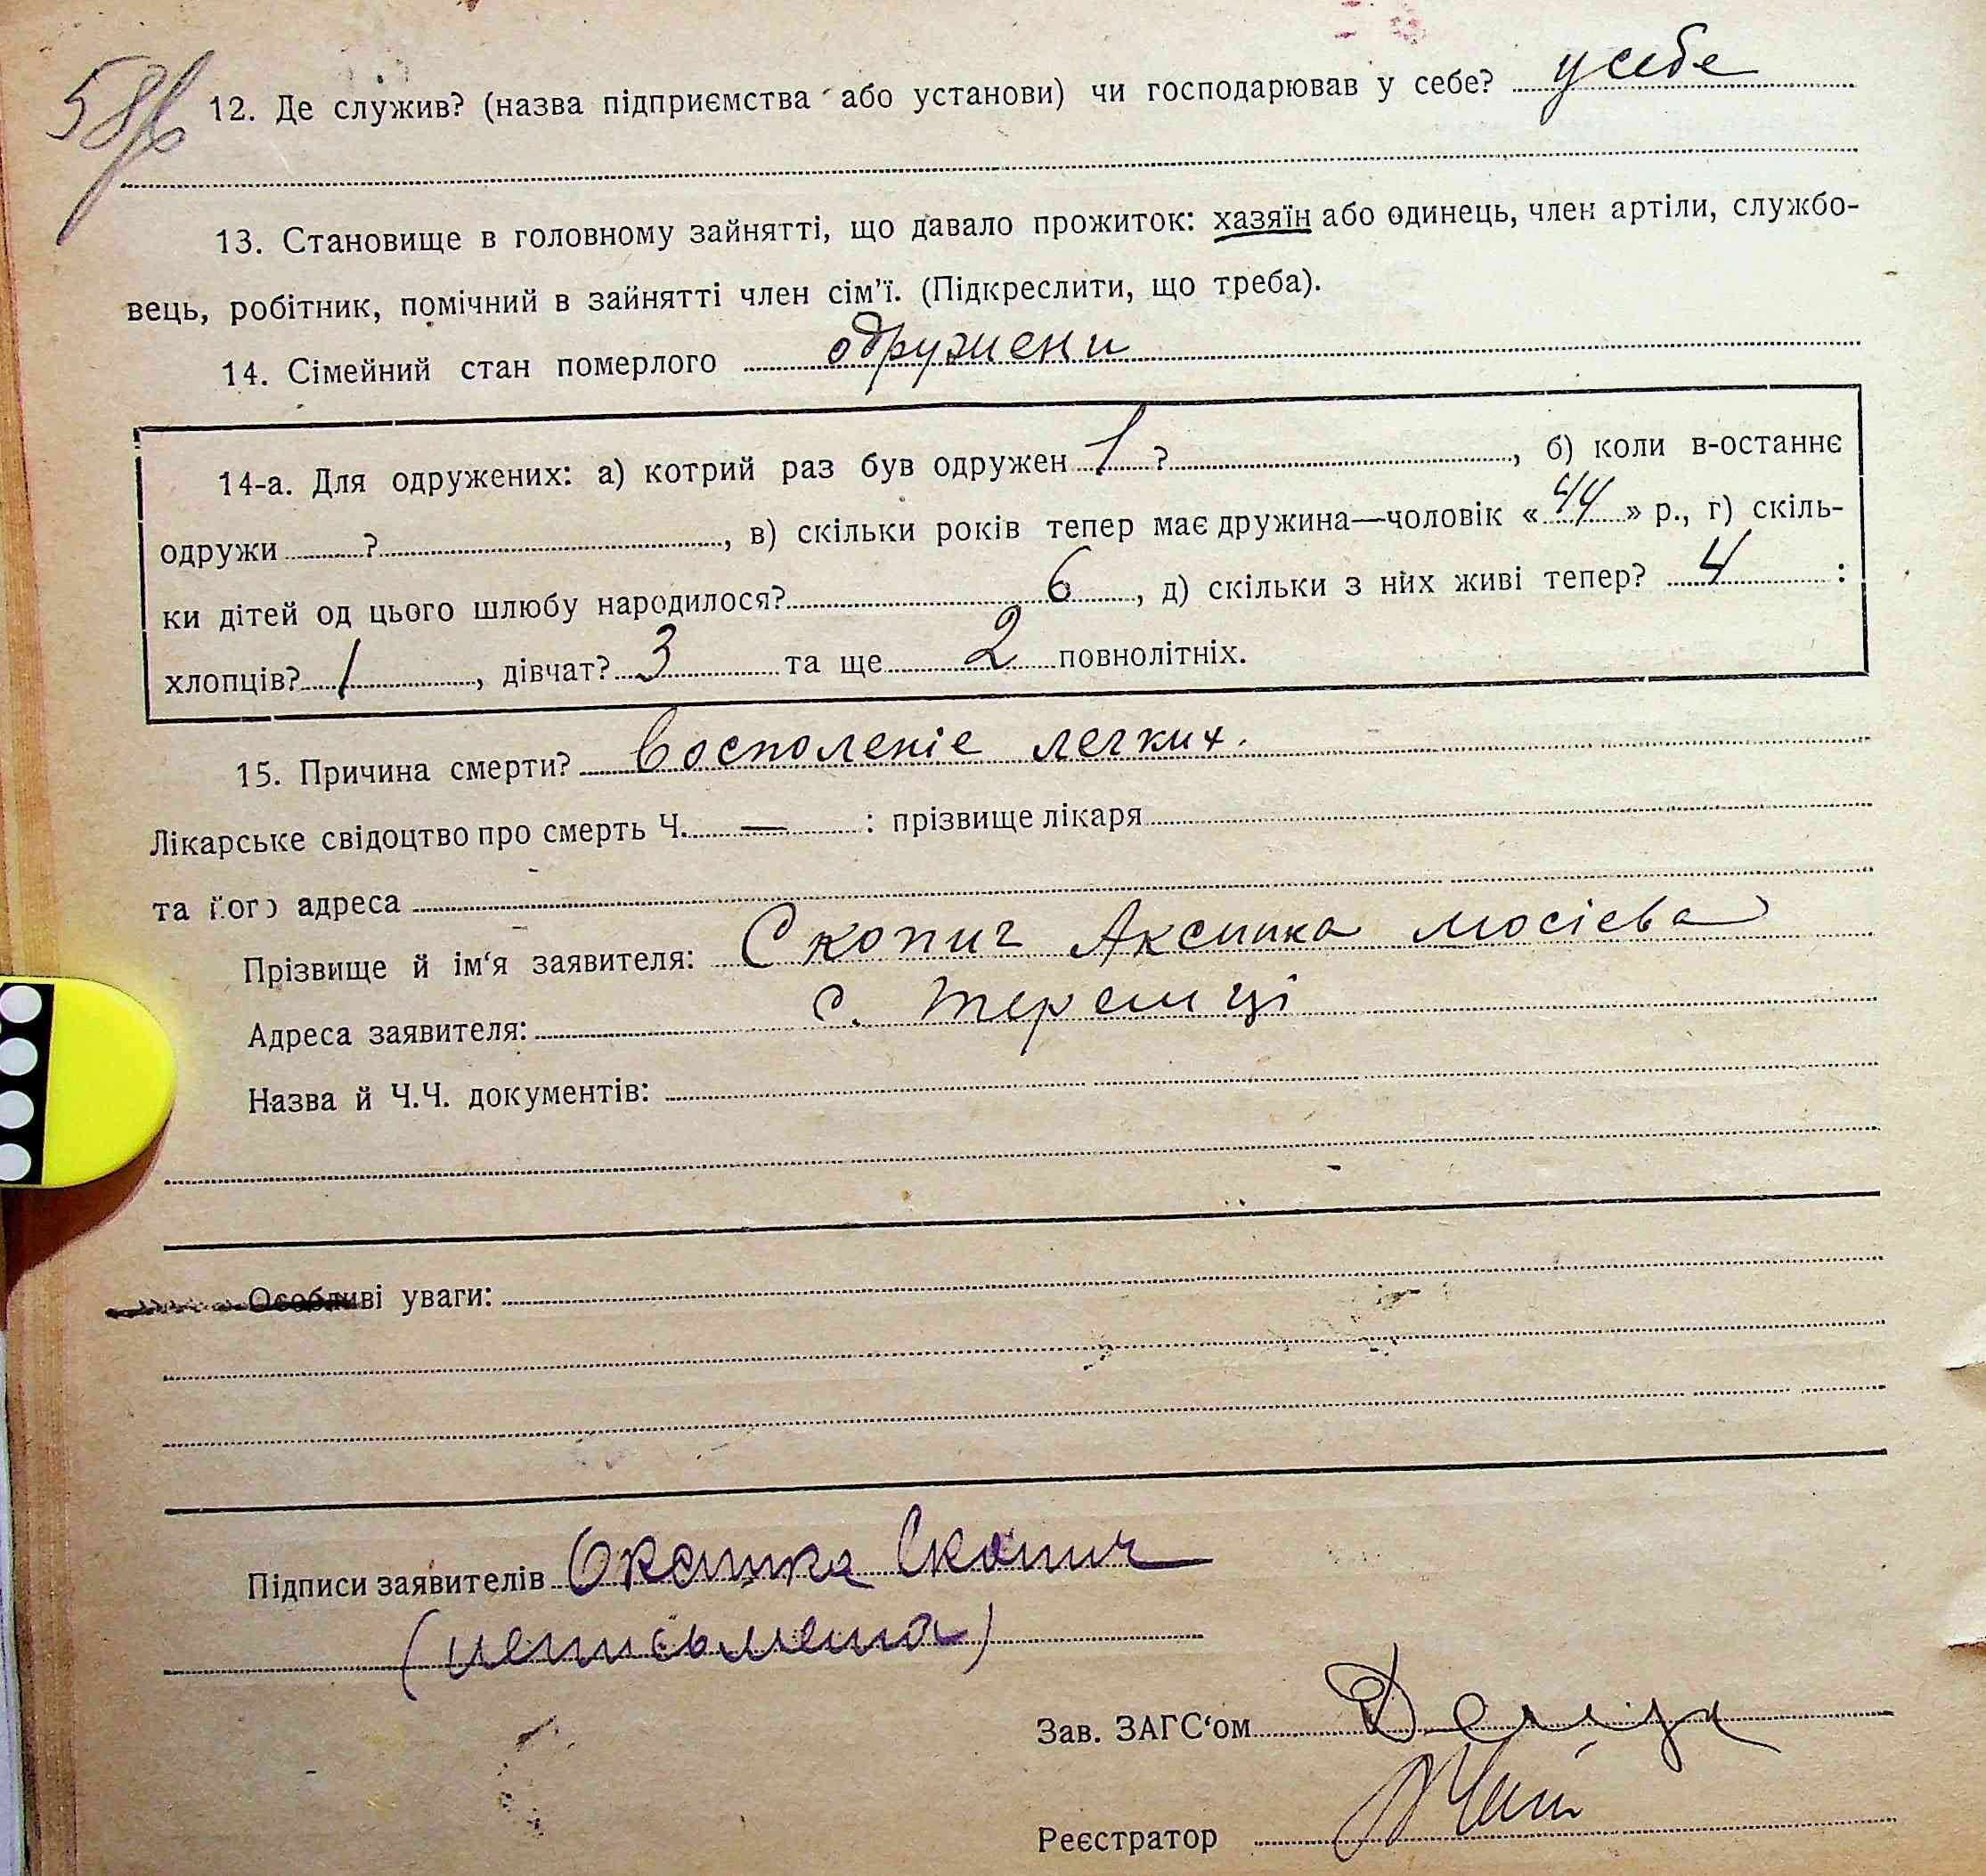 58
12. Де служив? (назва підприємства або установи) чи господарював у себе? у себе
13. Становище в головному зайнятті, що давало прожиток: хазяїн або одинець, член артіли, службо-
вець, робітник, помічний в зайнятті член сім'ї. (Підкреслити, що треба).
14. Сімейний стан померлого одружени
14-а. Для одружених: а) котрий раз був одружен 1 ?, б) коли в-останнє
одружи ?, в) скільки років тепер має дружина—чоловік «44» р., г) скіль-
ки дітей од цього шлюбу народилося? 6, д) скільки з них живі тепер? 4 :
хлопців? 1, дівчат? 3 та ще 2 повнолітніх.
15. Причина смерти? Восполеніе легких.
Лікарське свідоцтво про смерть Ч. — : прізвище лікаря
та його адреса
Прізвище й ім'я заявителя: Скопич Аксинка Мосієва
Адреса заявителя: с. Теремці
Назва й Ч.Ч. документів:
Особливі уваги:
Підписи заявителів Оксинка Скопич
(неписьмена)
Зав. ЗАГС'ом
Реєстратор